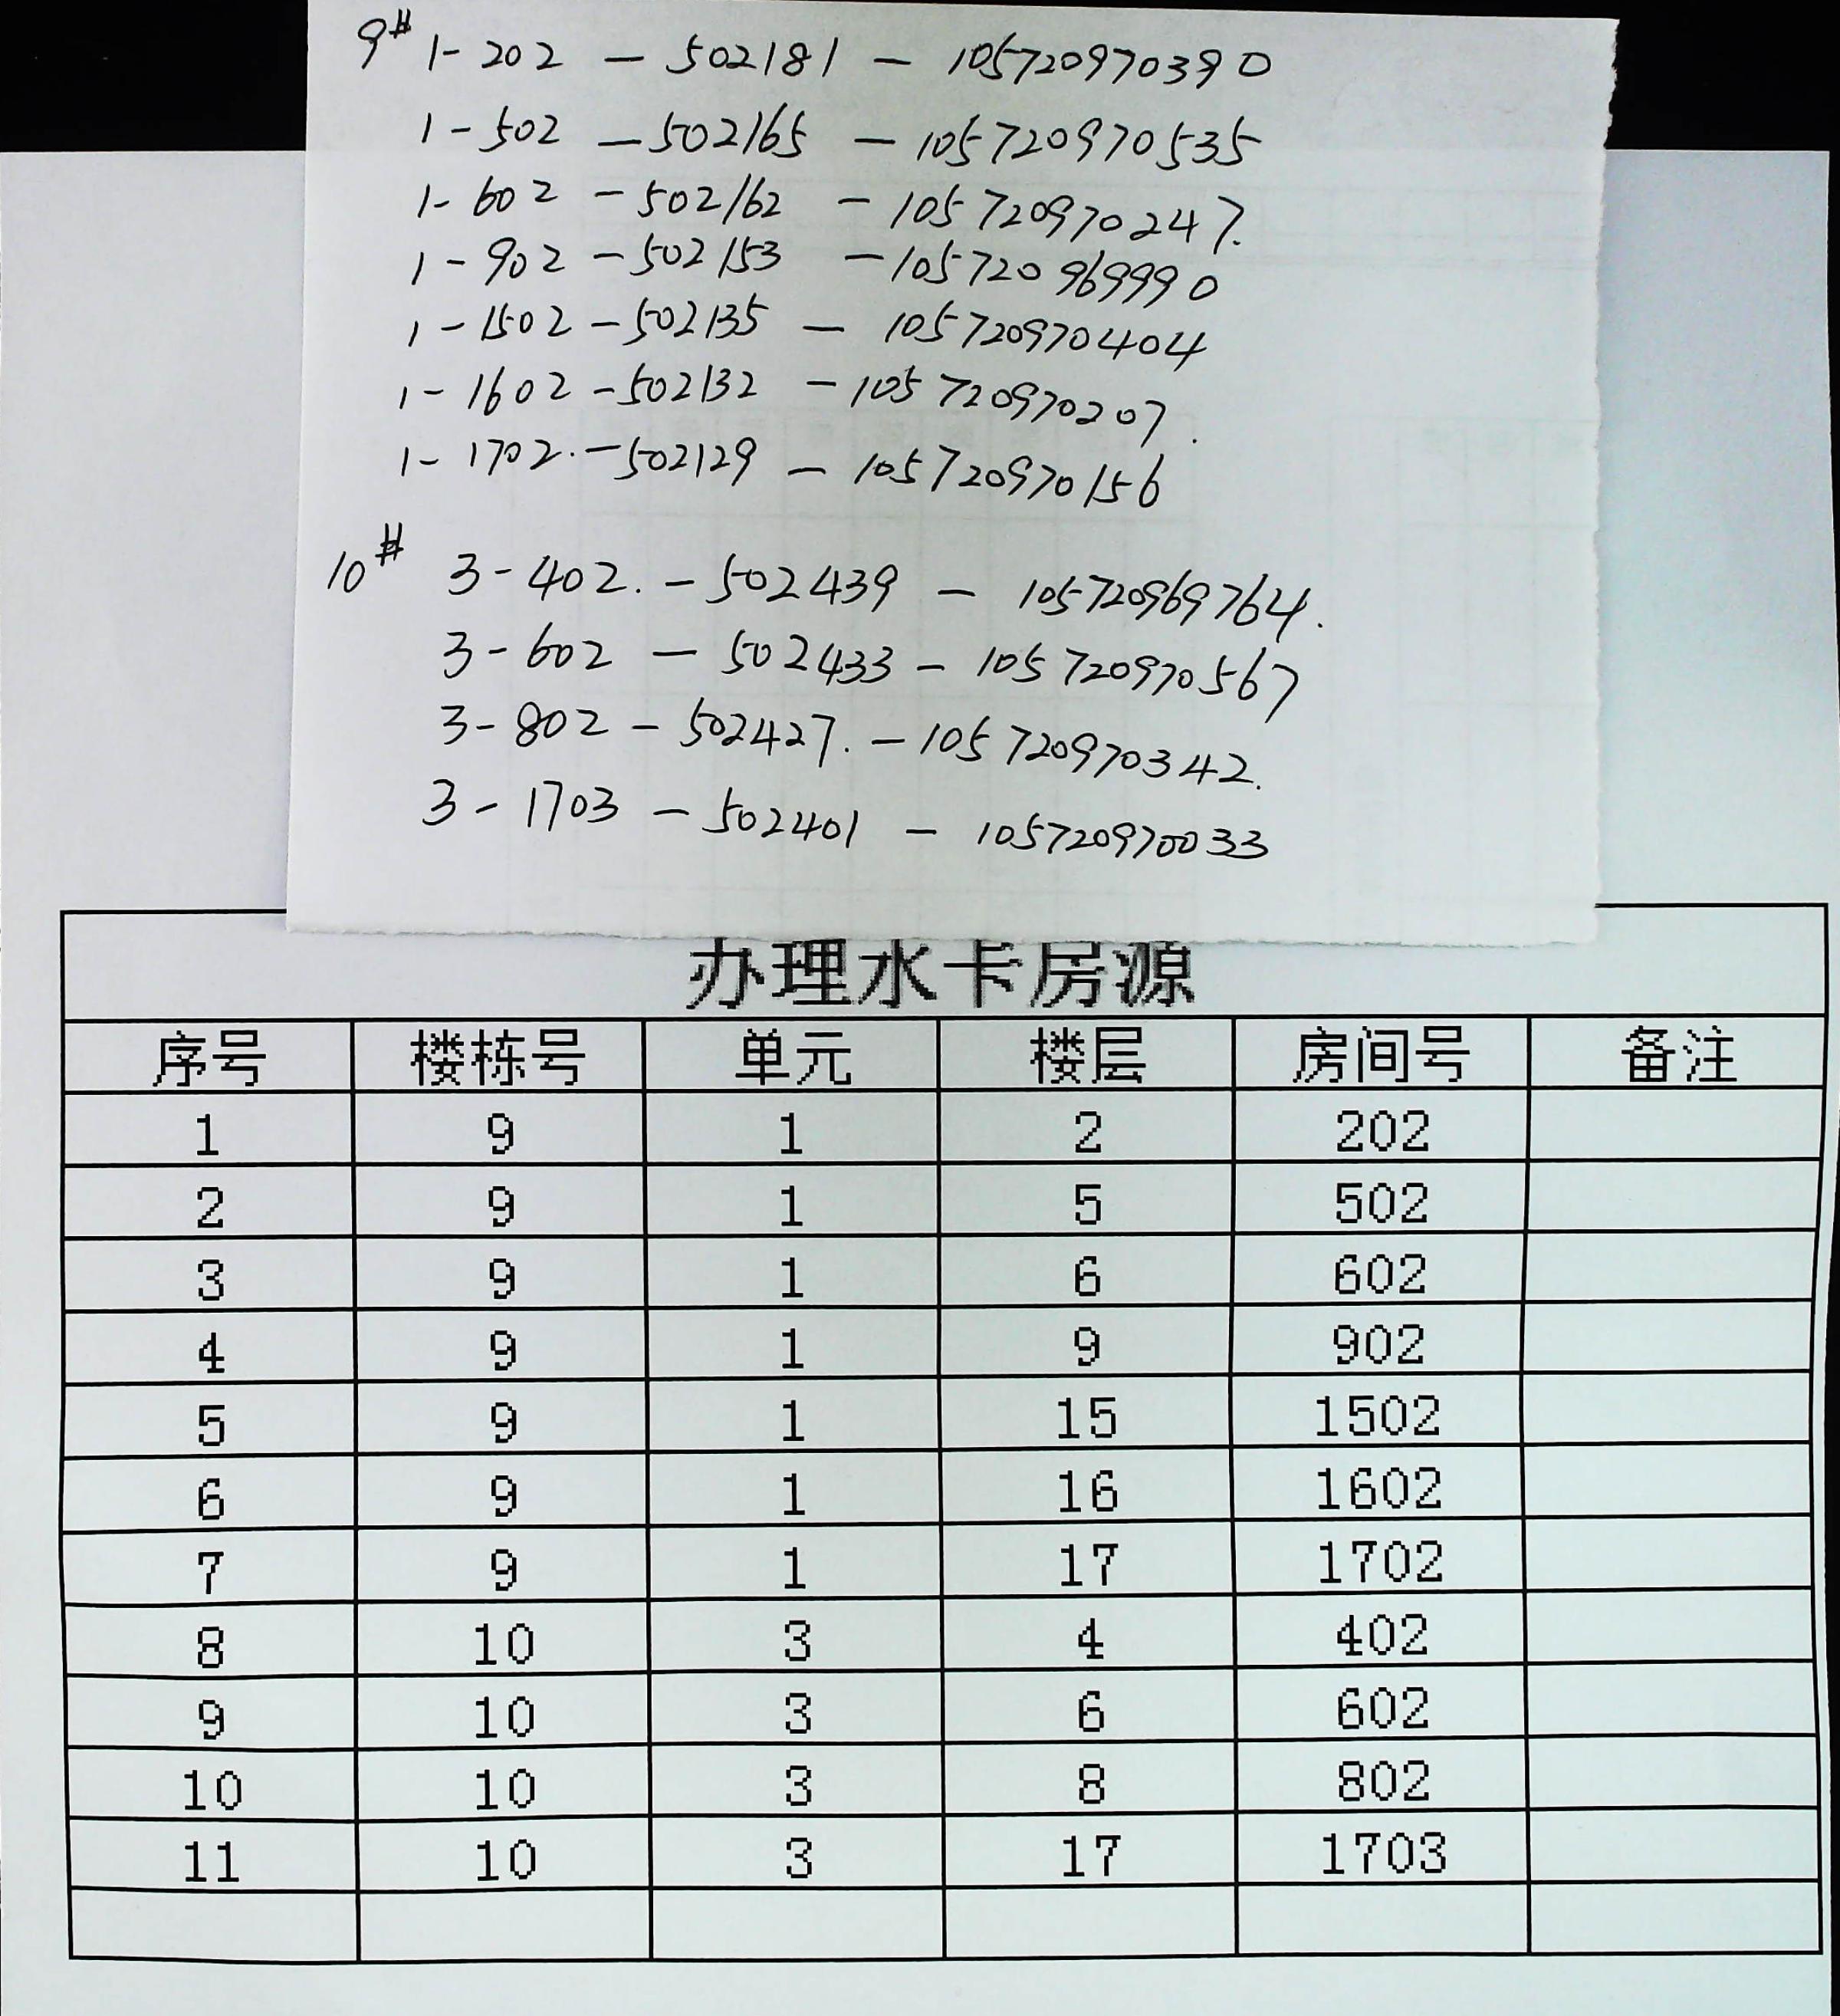 9# 1-202 - 502181 - 105720970390
1-502 - 502165 - 105720970535
1-602 - 502162 - 105720970247.
1-902 - 502153 - 105720969990
1-1502 - 502135 - 105720970404
1-1602 - 502132 - 105720970207.
1-1702. - 502129 - 105720970156
10# 3-402. - 502439 - 105720969764.
3-602 - 502433 - 105720970567
3-802 - 502427. - 105720970342.
3-1703 - 502401 - 105720970033
办理水卡房源
序号 楼栋号 单元 楼层 房间号 备注
1 9 1 2 202
2 9 1 5 502
3 9 1 6 602
4 9 1 9 902
5 9 1 15 1502
6 9 1 16 1602
7 9 1 17 1702
8 10 3 4 402
9 10 3 6 602
10 10 3 8 802
11 10 3 17 1703